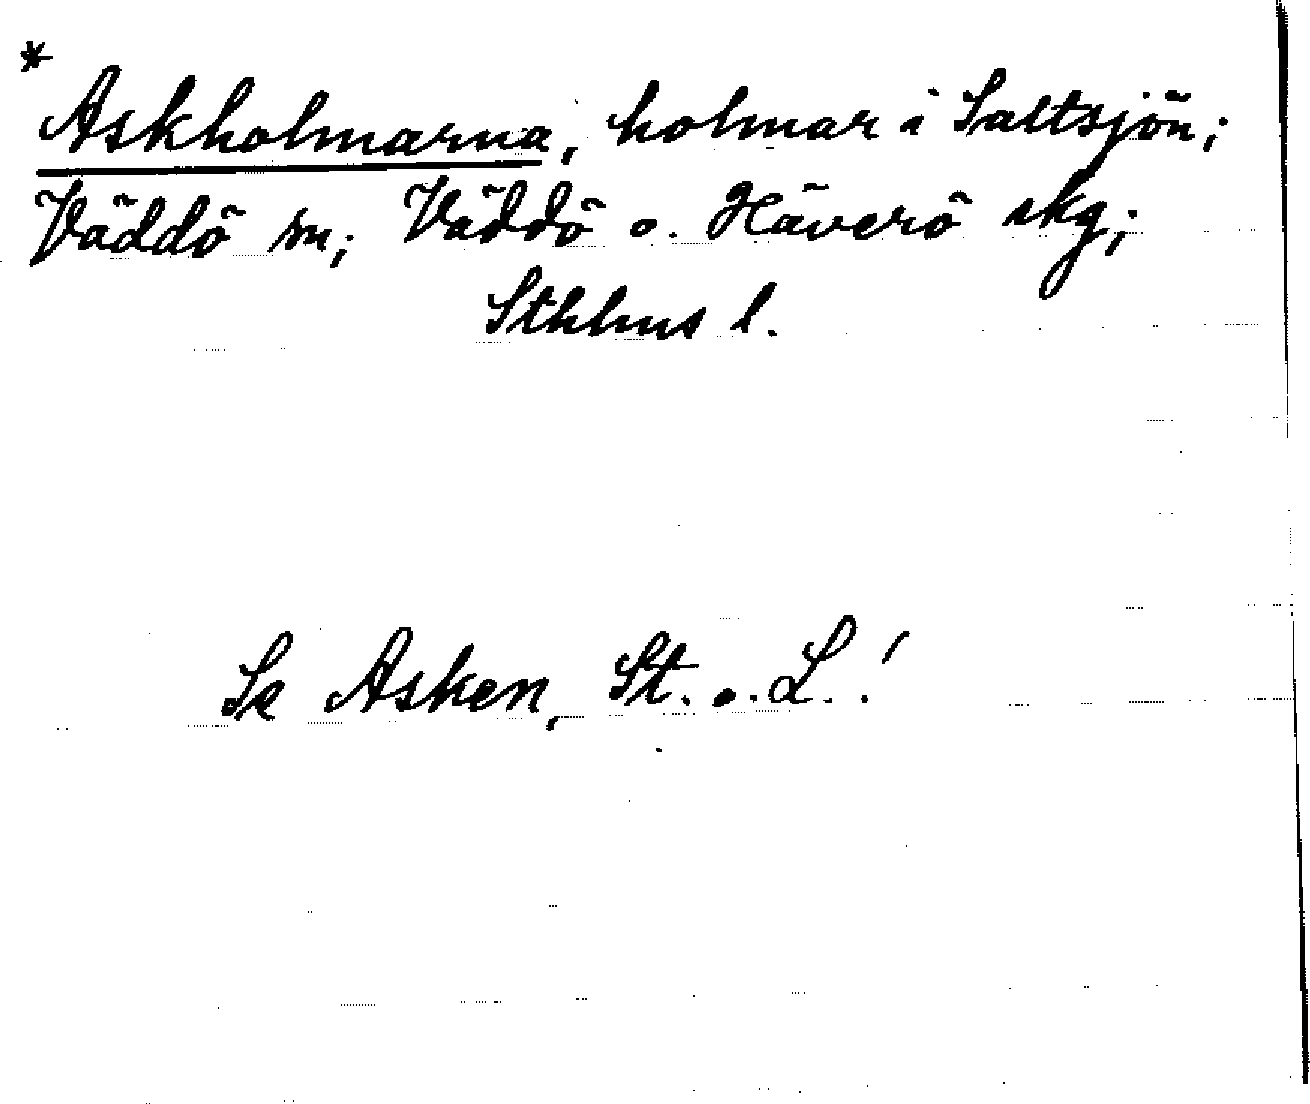 *
Askholmarna, holmar i Saltsjön;
Väddö sn; Väddö o. Häverö skg;
Sthlms l.
Se Asken, St. o. L.!